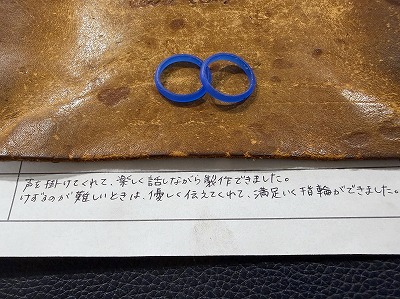 声を掛けてくれて、楽しく話しながら製作できました。
けずるのが難しいときは、優しく伝えてくれて、満足いく指輪ができました。